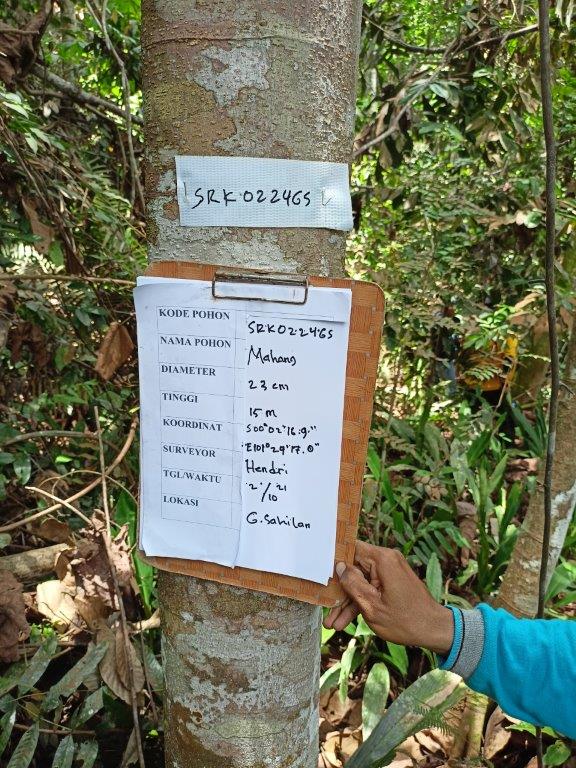 SRK 022465
KODE POHON SRK022465
NAMA POHON Mahang
DIAMETER 23 cm
TINGGI 15 m
KOORDINAT S00°02'16.9."
E101°29'17.0"
SURVEYOR Hendri
TGL/WAKTU 2/10 21
LOKASI G.Sahilan